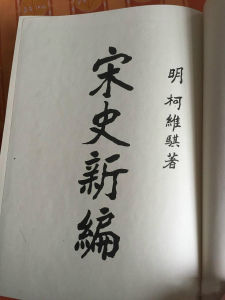 明 柯維騏著
宋史新編